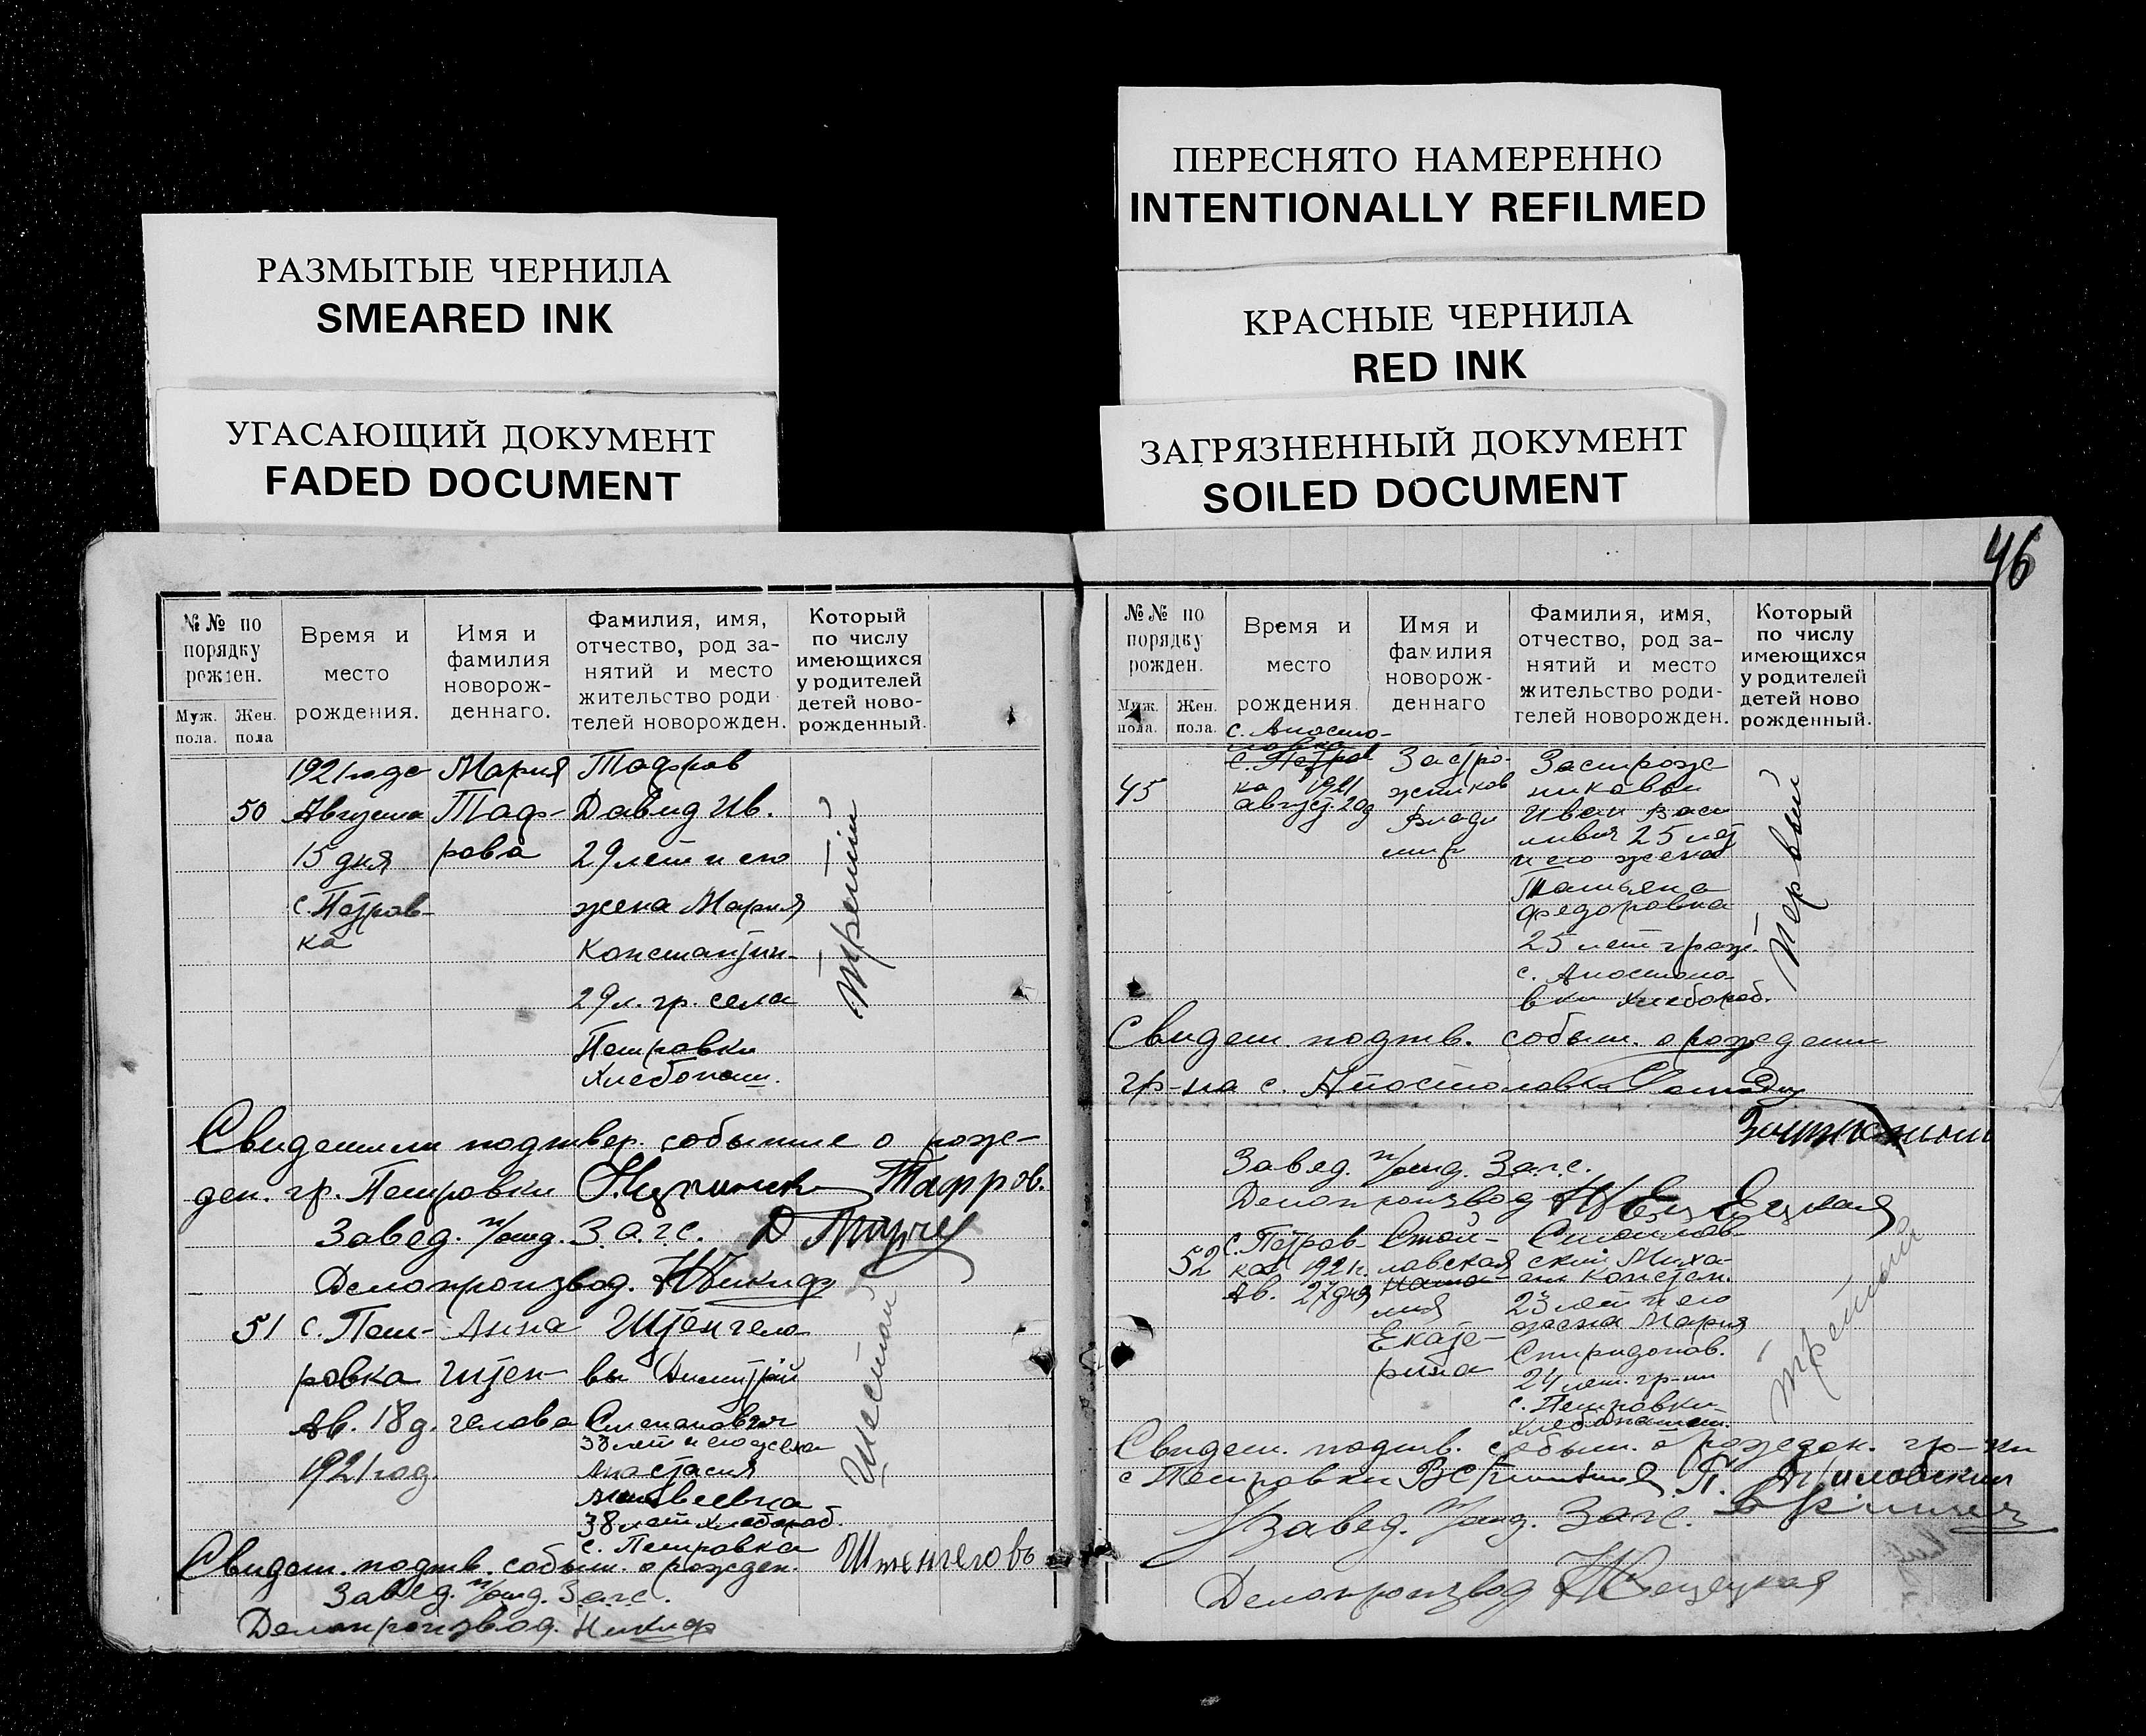 РАЗМЫТЫЕ ЧЕРНИЛА
SMEARED INK
УГАСАЮЩИЙ ДОКУМЕНТ
FADED DOCUMENT
ПЕРЕСНЯТО НАМЕРЕННО
INTENTIONALLY REFILMED
КРАСНЫЕ ЧЕРНИЛА
RED INK
ЗАГРЯЗНЕННЫЙ ДОКУМЕНТ
SOILED DOCUMENT
№№ по
порядку
рожден.
Муж.
пола.
Жен.
пола
Время и
место
рождения.
Имя и
фамилия
новорож-
деннаго.
Фамилия, имя,
отчество, род за-
нятий и место
жительство роди
телей новорожден.
Который
по числу
имеющихся
у родителей
детей ново-
рожденный.
50
1921 года
Августа
15 дня
с. Петров-
ка
Мария
Таф-
рова
Тафров
Давид Ив.
29 лет и его
жена Мария
Константин-
29 л. гр. села
Петровки
хлебопаш.
третий
Свидетели подтвер. событие о рож-
ден. гр. Петровки Тафров.
Завед. п/отд. З.а.г.с.
Делопроизвод.
51
с. Пет-
ровка
Ав. 18 д.
1921 год.
Анна
Штен-
гелова
Штенгело
вы Димитрий
Степанович
38 лет и его жена
Анастасия
Матвеевна
38 лет хлебороб.
с. Петровка
Шестой
Свидет. подтв. событ. о рожден. Штенгеловъ
Завед. п/отд. Загс.
Делопроизвод.
46
№№ по
порядку
рожден.
Муж.
пола.
Жен.
пола.
Время и
место
рождения.
Имя и
фамилия
новорож-
деннаго
Фамилия, имя,
отчество, род за-
нятий и место
жительство роди-
телей новорожден.
Который
по числу
имеющихся
у родителей
детей ново
рожденный.
45
с. Апосто-
ловка
с. Петров
ка 1921
август. 20д
Застро-
жников
Влади
мир
Застрож
никовы
Иван Васи
лиевич 25 лет
и его жена
Татьяна
Федоровна
25 лет граж.
с. Апостоло
вки хлебороб.
Первый
Свидет подтв. событ. о рождении
гр-на с. Апостоловки
Завед. п/отд. Загс.
Делопроизвод
52
с. Петров-
ка 1921г.
Ав. 27 дня
Стой-
ловская
Ната-
лия
Екате-
рина
Стойлов-
ский Миха-
ил Констан.
23 лет и его
жена Мария
Спиридонов.
24 лет. гр-ни
с. Петровки
хлебопашест.
третий
Свидет. подтв. событ. о рожден. гр-ки
с Петровки
Завед. п/отд. Загс.
Делопроизвод